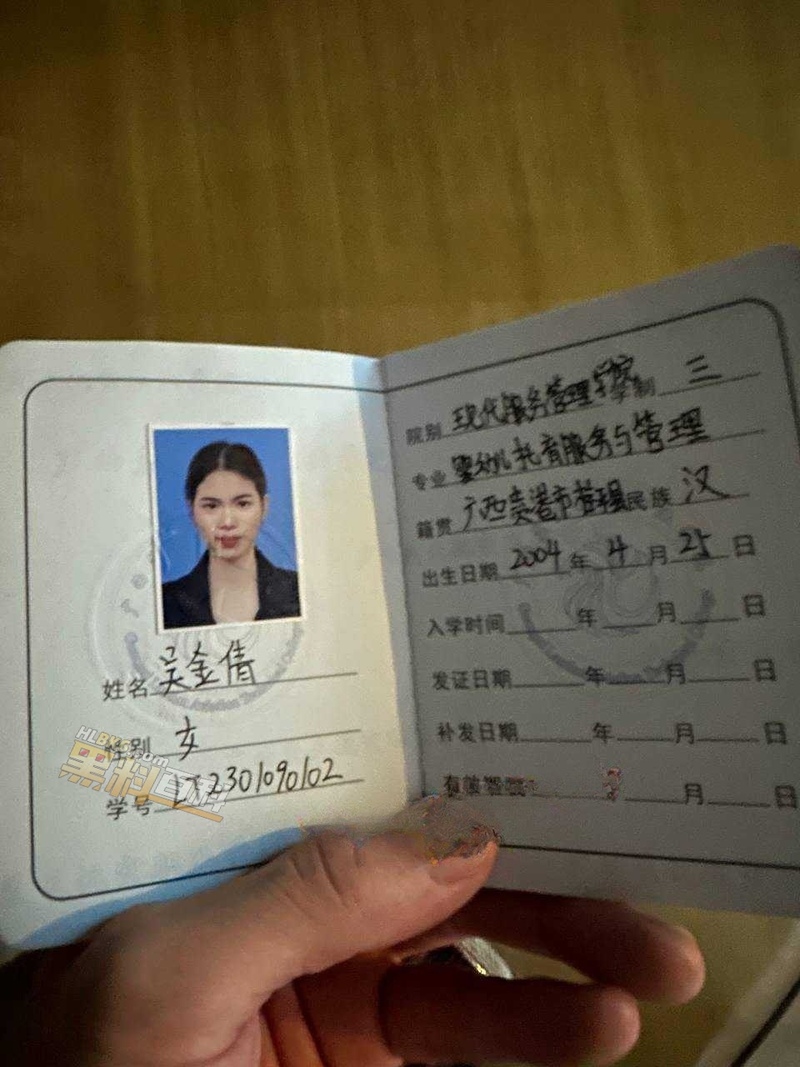 姓名 吴金倩
性别 女
学号 2301090102
HLBY
黑料
院别 现代服务管理学院 学制 三
专业 婴幼儿托育服务与管理
籍贯 广西贵港市 民族 汉
出生日期 2004 年 4 月 25 日
入学时间 年 月 日
发证日期 年 月 日
补发日期 年 月 日
月 日